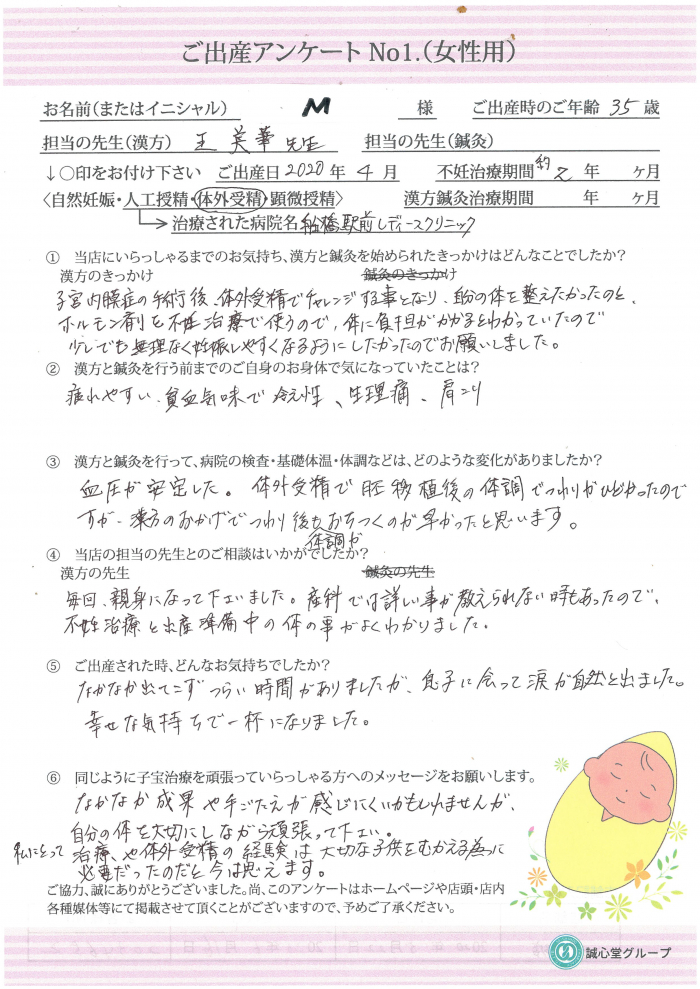 ご出産アンケート No1.(女性用)
お名前(またはイニシャル) M 様 ご出産時のご年齢 35 歳
担当の先生(漢方) 王 美華 先生 担当の先生(鍼灸)
↓○印をお付け下さい ご出産日 2020 年 4 月 不妊治療期間 約 2 年 ヶ月
〈自然妊娠・人工授精・体外受精・顕微授精〉 漢方鍼灸治療期間 年 ヶ月
治療された病院名 船橋駅前レディースクリニック
① 当店にいらっしゃるまでのお気持ち、漢方と鍼灸を始められたきっかけはどんなことでしたか?
漢方のきっかけ 鍼灸のきっかけ
子宮内膜症の手術後、体外受精でチャレンジする事となり、自分の体を整えたかったのと、
ホルモン剤を不妊治療で使うので、体に負担がかかるとわかっていたので
少しでも無理なく妊娠しやすくなるようにしたかったのでお願いしました。
② 漢方と鍼灸を行う前までのご自身のお身体で気になっていたことは?
疲れやすい、貧血気味で冷え性、生理痛、肩こり
③ 漢方と鍼灸を行って、病院の検査・基礎体温・体調などは、どのような変化がありましたか?
血圧が安定した。体外受精で胚移植後の体調でつわりがひどかったので
すが、漢方のおかげでつわり後も体調がおちつくのが早かったと思います。
④ 当店の担当の先生とのご相談はいかがでしたか?
漢方の先生 鍼灸の先生
毎回、親身になって下さいました。産科では詳しい事が教えられない時もあったので、
不妊治療と出産準備中の体の事がよくわかりました。
⑤ ご出産された時、どんなお気持ちでしたか?
なかなか出てこずつらい時間がありましたが、息子に会って涙が自然と出ました。
幸せな気持ちで一杯になりました。
⑥ 同じように子宝治療を頑張っていらっしゃる方へのメッセージをお願いします。
なかなか成果や手ごたえが感じにくいかもしれませんが、
自分の体を大切にしながら頑張って下さい。
私にとって治療、や体外受精の経験は大切な子供をむかえる為に
必要だったのだと今は思えます。
ご協力、誠にありがとうございました。尚、このアンケートはホームページや店頭・店内
各種媒体等にて掲載させて頂くことがございますので、予めご了承ください。
誠心堂グループ